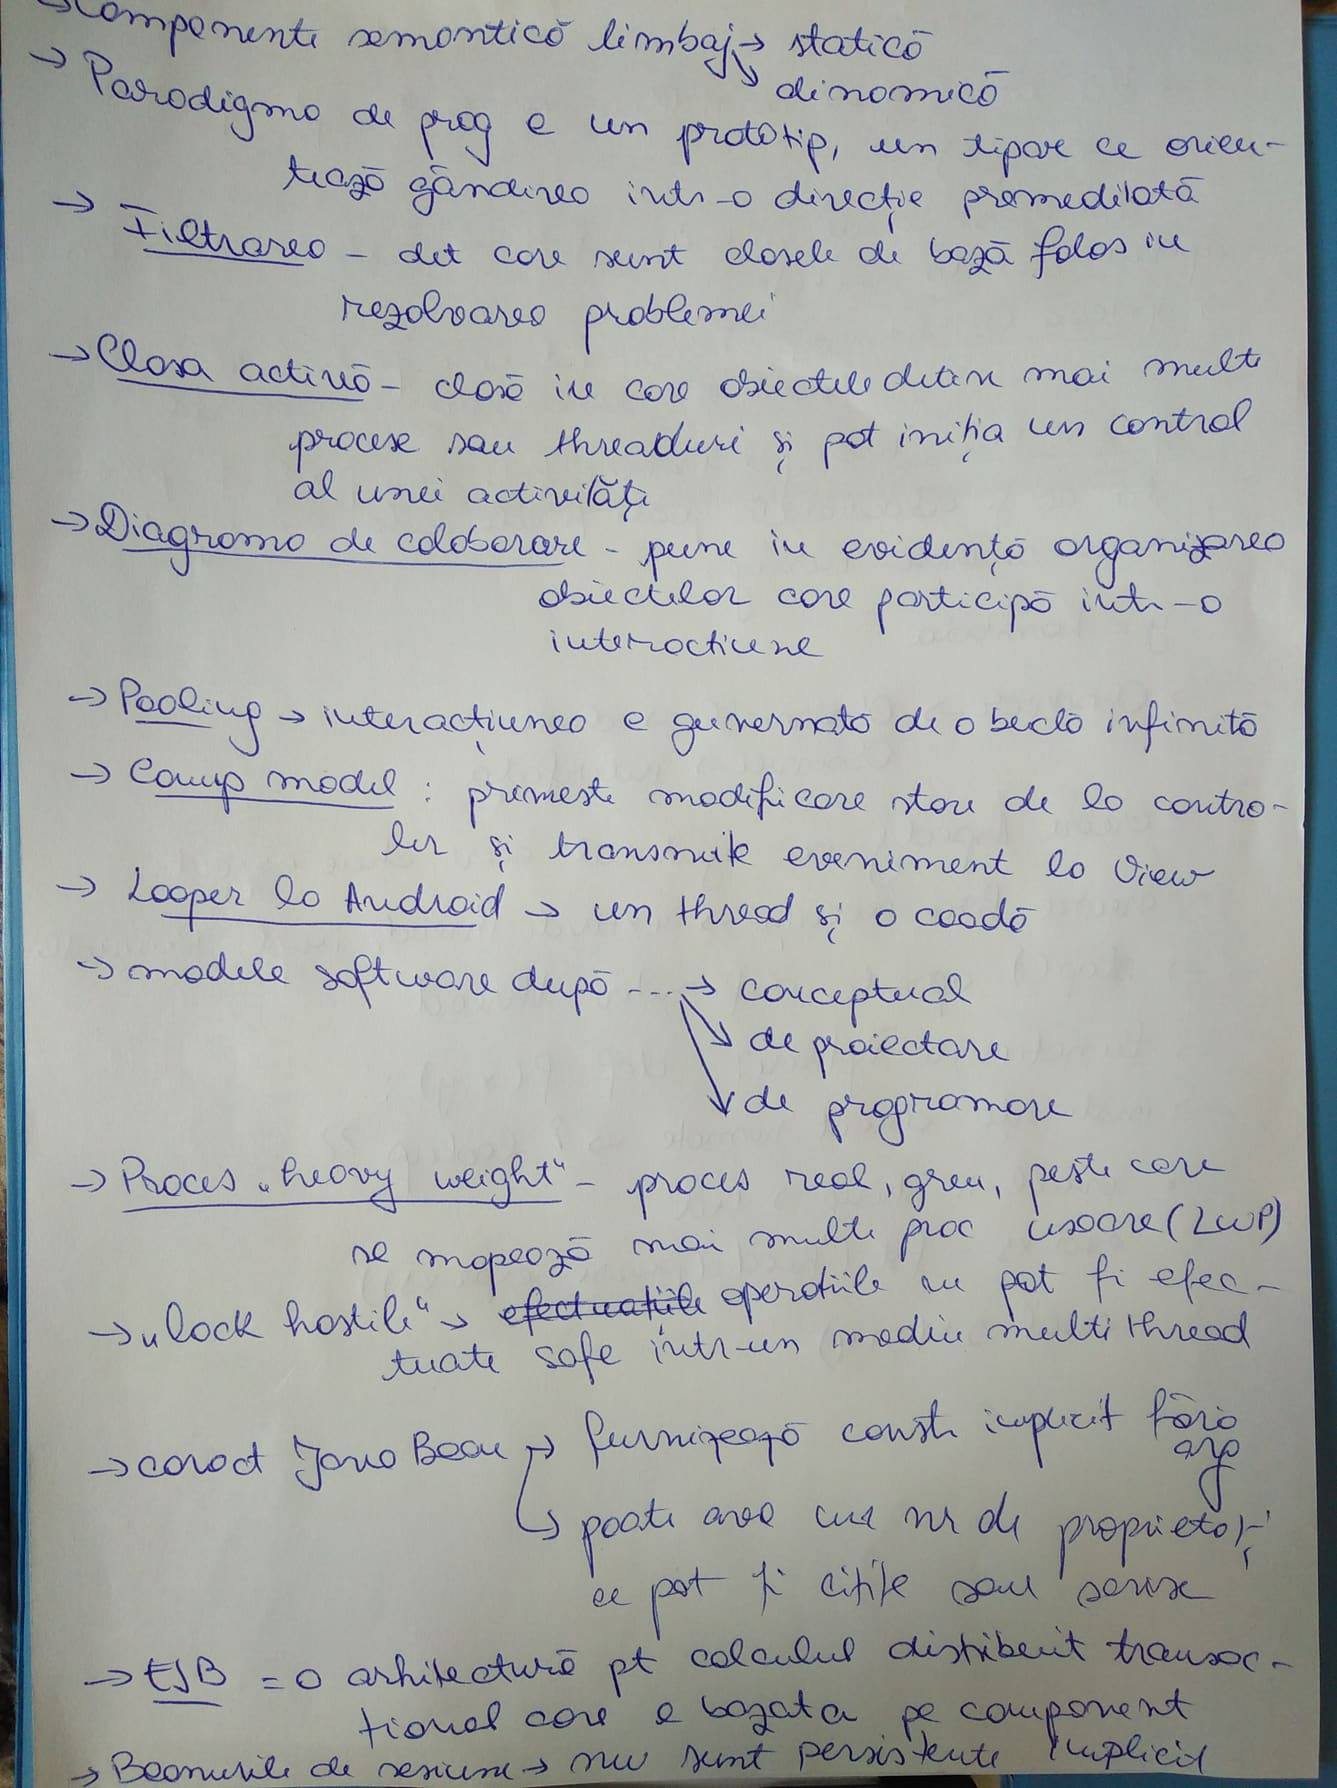 → Componente semantică limbaj → statică
↘ dinamică
→ Paradigma de prog e un prototip, un tipar ce orien-
tează gândirea intr-o direcție premeditată
→ Filtrarea - det care sunt clasele de bază folos in
rezolvarea problemei
→ Clasa activă - clasă in care obiectele detin mai multe
procese sau threaduri și pot iniția un control
al unei activități
→ Diagrama de colaborare - pune in evidență organizarea
obiectelor care participă intr-o
interactiune
→ Pooling → interacțiunea e guvernată de o buclă infinită
→ Comp model : primeste modificare stare de la contro-
ler și transmite eveniment la View
→ Looper la Android → un thread și o coadă
→ modele software după ---→ conceptual
↘ de proiectare
↘ de programare
→ Proces „heavy weight“ - proces real, greu, peste care
se mapează mai multe proc usoare (LWP)
→ „lock hostile“ → operatiile nu pot fi efec-
tuate safe intr-un mediu multi thread
→ caract Java Bean → furnizează constr implicit fără
arg
↳ poate avea un nr de proprietăți
ce pot fi citite sau scrise
→ EJB = o arhitectură pt calculul distribuit transac-
tional care e bazata pe component
→ Beanurile de sesiune → nu sunt persistente implicit